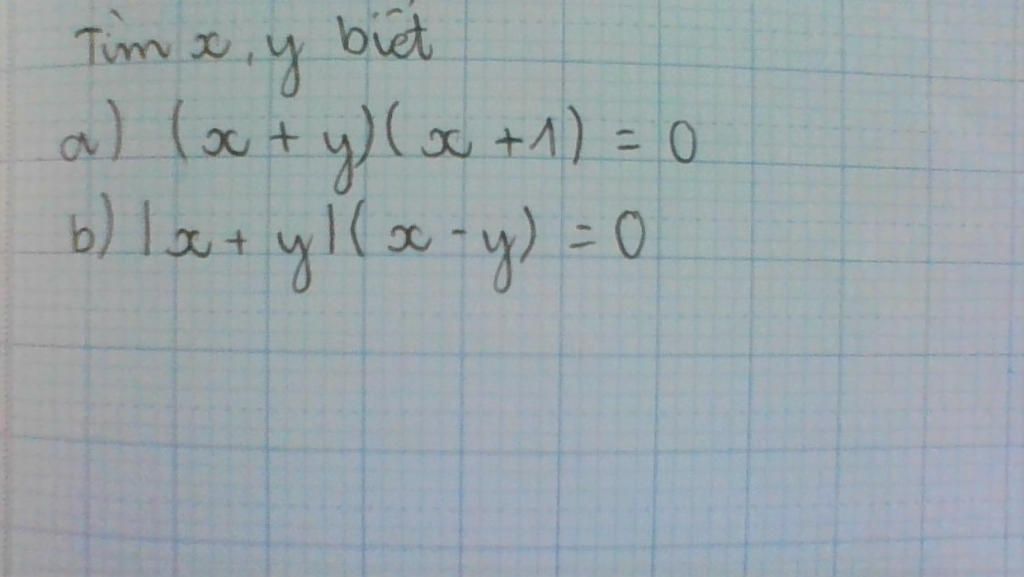 Tìm x, y biết
a) (x + y)(x + 1) = 0
b) |x + y|(x - y) = 0